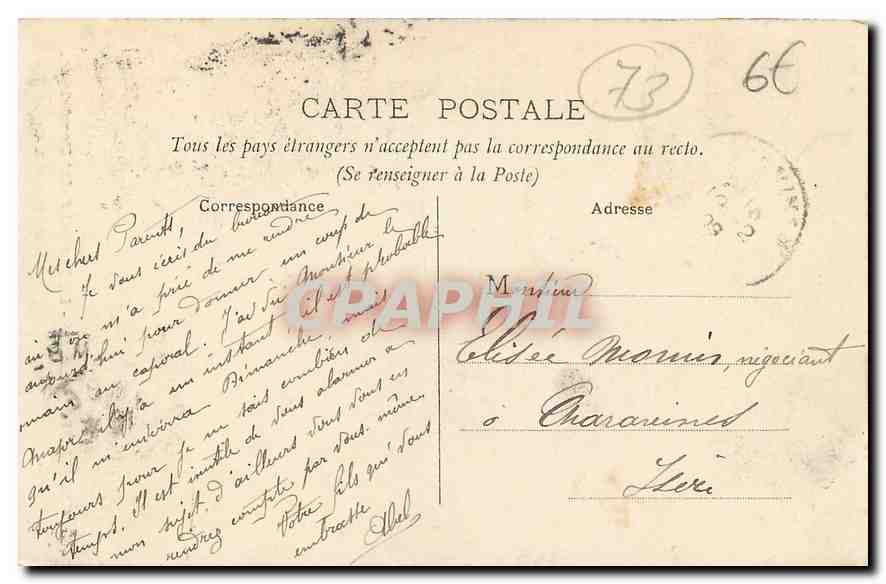 73
6€
CARTE POSTALE
Tous les pays étrangers n'acceptent pas la correspondance au recto.
(Se renseigner à la Poste)
Correspondance
Adresse
Mes chers Parents,
Je vous écris du bureau
où on m'a prié de me rendre
aujourd'hui pour donner un coup de
main au caporal. J'ai vu Monsieur le
Major il y a un instant, il est probable
qu'il m'enverra Dimanche mais
toujours pour je ne sais combien de
temps. Il est inutile de vous alarmer à
mon sujet d'ailleurs vous vous en
rendrez compte par vous-même.
Votre fils qui vous
embrasse
Abel
CPAPHIL
Monsieur
Elisée Monin, négociant
à Charavines
Isère